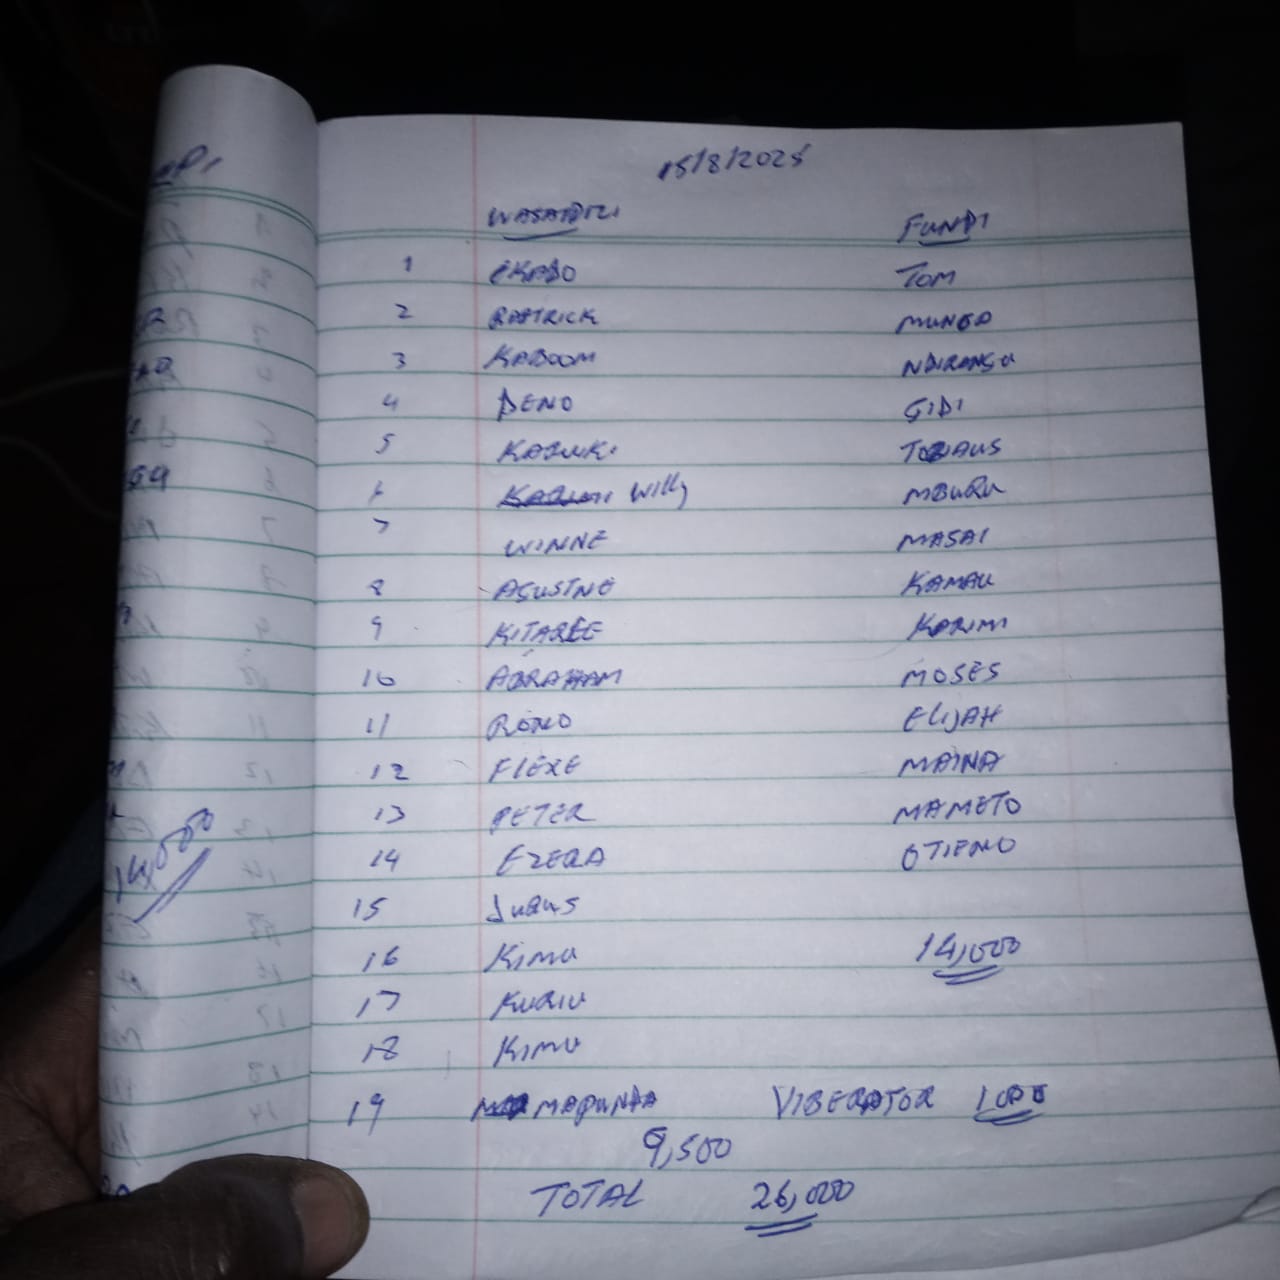 15/8/2025
WASAIDIZI FUNDI
1 EKABO TOM
2 PATRICK MUNGA
3 KABOOM NDIRANGU
4 DENO GIDI
5 KARIUKI TOBIAUS
6 Willy MBURU
7 WINNE MASAI
8 AGUSTNE KAMAU
9 KITAREE KARIMI
10 ABRAHAM MOSES
11 RONO ELIJAH
12 FLEXE MAINA
13 PETER MAMETO
14 EZERA OTIENO
15 JULIUS
16 KIMU 14,000
17 KURIU
18 KIMU
19 MAPUNDA VIBERATOR 1000
9,500
TOTAL 26,000
14,000